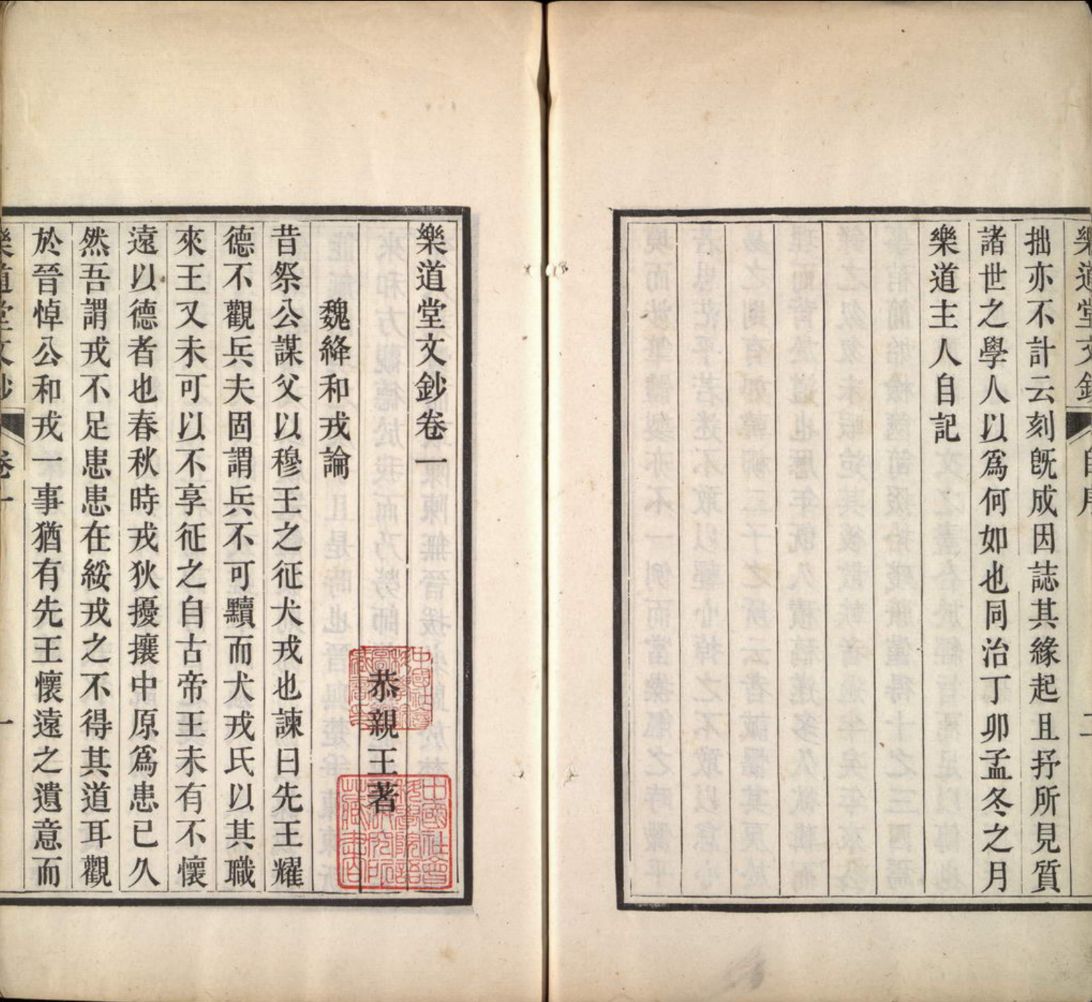 樂道堂文鈔
自序
拙亦不計云刻旣成因誌其緣起且抒所見質
諸世之學人以爲何如也同治丁卯孟冬之月
樂道主人自記
樂道堂文鈔卷一
恭親王著
魏絳和戎論
昔祭公謀父以穆王之征犬戎也諫曰先王耀
德不觀兵夫固謂兵不可黷而犬戎氏以其職
來王又未可以不享征之自古帝王未有不懷
遠以德者也春秋時戎狄擾攘中原爲患已久
然吾謂戎不足患患在綏戎之不得其道耳觀
於晉悼公和戎一事猶有先王懷遠之遺意而
樂道堂文鈔
卷一
一